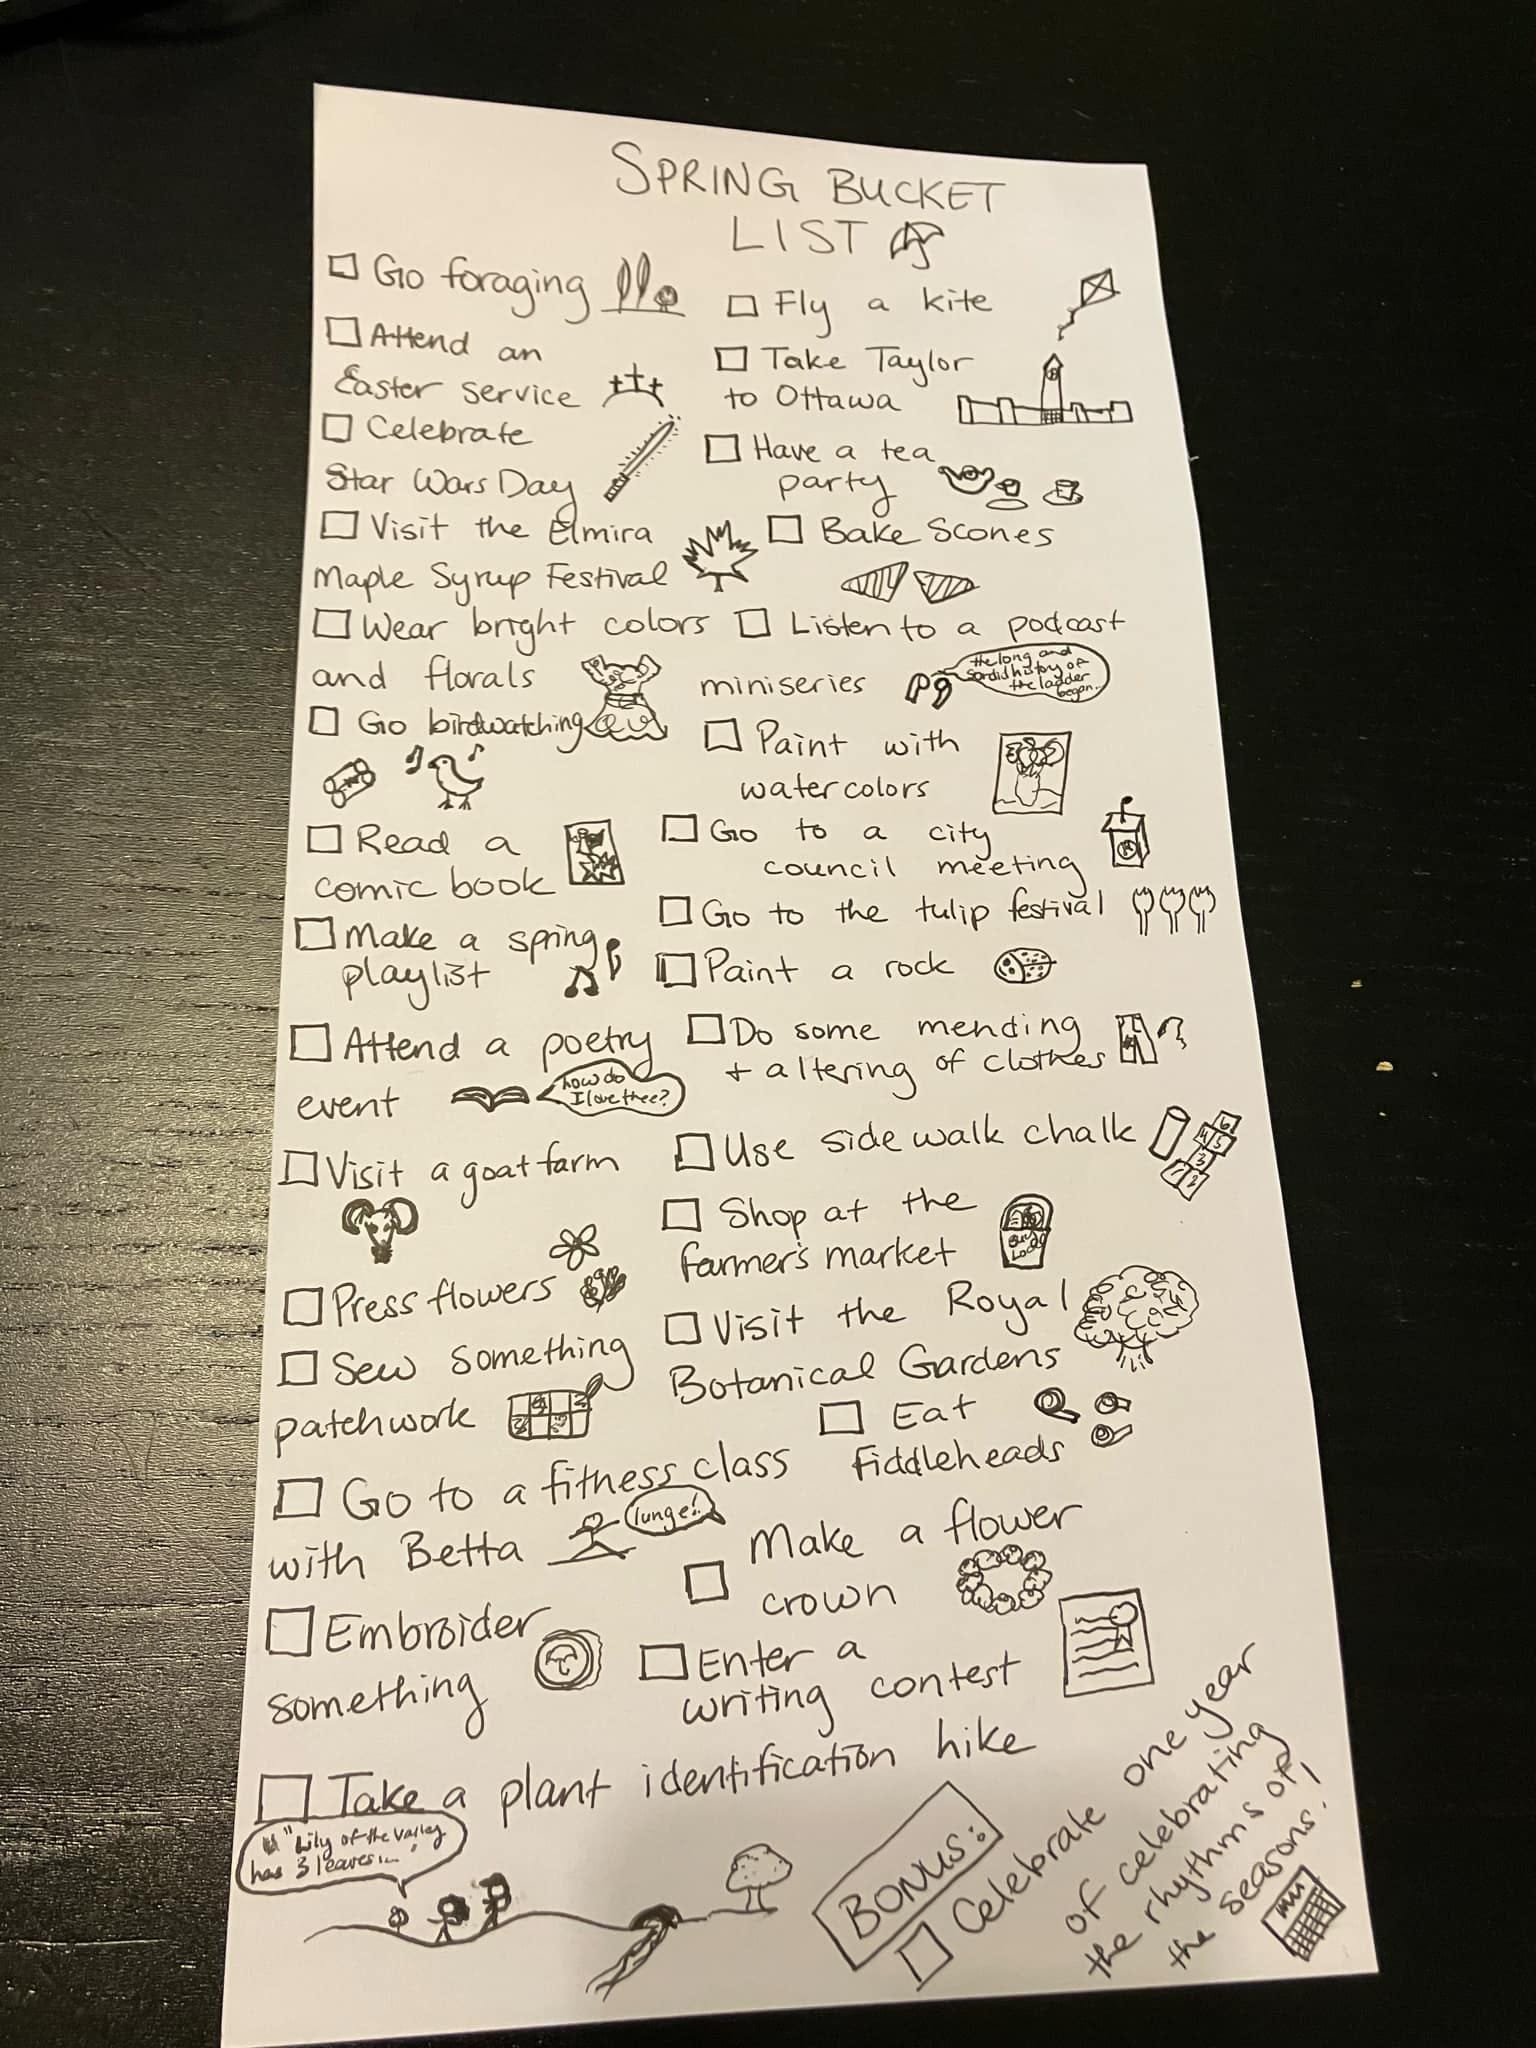 SPRING BUCKET
LIST
Go foraging
Attend an
Easter service
Celebrate
Star Wars Day
Visit the Elmira
Maple Syrup Festival
Wear bright colors
and florals
Go birdwatching
Read a
comic book
Make a spring
playlist
Attend a poetry
event
how do
I love thee?
Visit a goat farm
Press flowers
Sew something
patchwork
Go to a fitness class
with Betta
lunge!
Embroider
something
Take a plant identification hike
"Lily of the valley
has 3 leaves..."
Fly a kite
Take Taylor
to Ottawa
Have a tea
party
Bake Scones
Listen to a podcast
miniseries
the long and
sordid history of
the ladder
began...
Paint with
watercolors
Go to a city
council meeting
Go to the tulip festival
Paint a rock
Do some mending
+ altering of clothes
Use sidewalk chalk
6
4 5
3
1 2
Shop at the
farmer's market
Buy
Local
Visit the Royal
Botanical Gardens
Eat
Fiddleheads
Make a flower
crown
Enter a
writing contest
BONUS:
Celebrate one year
of celebrating
the rhythms of
the seasons!